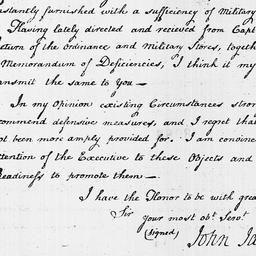 stantly furnished with a sufficiency of Military
Having lately directed and recieved from Capt
eturn of the ordinance and Military Stores, togeth
Memorandum of Deficiencies, I think it my
ansmit the same to You—
In my Opinion existing Circumstances stron
commend defensive measures, and I regret that
ot been more amply provided for. I am convinc
ttention of the Executive to these Objects and
Readiness to promote them—
I have the Honor to be with grea
Sir
your most obt. Servt.
(signed)
John Ja